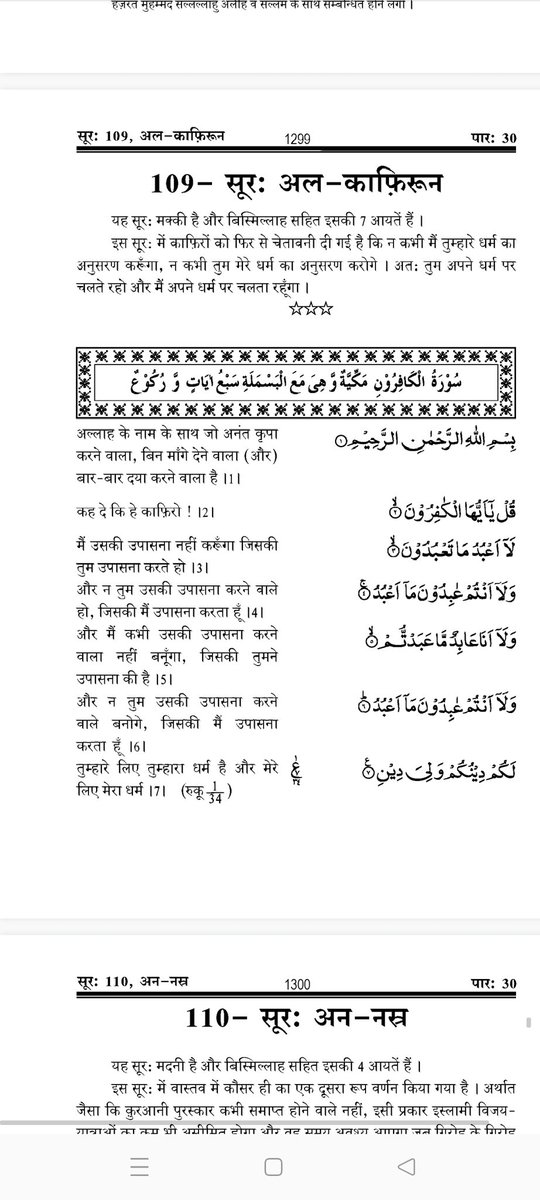 हज़रत मुहम्मद सल्लल्लाहु अलैहि व सल्लम के साथ सम्बन्धित होने लगी ।
सूर: 109, अल-काफ़िरून 1299 पार: 30
109- सूर: अल-काफ़िरून
यह सूर: मक्की है और बिस्मिल्लाह सहित इसकी 7 आयतें हैं ।
इस सूर: में काफ़िरों को फिर से चेतावनी दी गई है कि न कभी मैं तुम्हारे धर्म का
अनुसरण करूँगा, न कभी तुम मेरे धर्म का अनुसरण करोगे । अत: तुम अपने धर्म पर
चलते रहो और मैं अपने धर्म पर चलता रहूँगा ।
☆☆☆
سُوْرَةُ الْكَافِرُوْنِ مَكِّيَّةٌ وَّ هِىَ مَعَ الْبَسْمَلَةِ سَبْعُ اٰيَاتٍ وَّ رُكُوْعٌ
अल्लाह के नाम के साथ जो अनंत कृपा
करने वाला, बिन माँगे देने वाला (और)
बार-बार दया करने वाला है ।1।
بِسْمِ اللّٰهِ الرَّحْمٰنِ الرَّحِيْمِ ۝١
कह दे कि हे काफ़िरो ! ।2।
قُلْ يٰٓاَيُّهَا الْكٰفِرُوْنَ ۝٢
मैं उसकी उपासना नहीं करूँगा जिसकी
तुम उपासना करते हो ।3।
لَآ اَعْبُدُ مَا تَعْبُدُوْنَ ۝٣
और न तुम उसकी उपासना करने वाले
हो, जिसकी मैं उपासना करता हूँ ।4।
وَلَآ اَنْتُمْ عٰبِدُوْنَ مَآ اَعْبُدُ ۝٤
और मैं कभी उसकी उपासना करने
वाला नहीं बनूँगा, जिसकी तुमने
उपासना की है ।5।
وَلَآ اَنَا عَابِدٌ مَّا عَبَدْتُّمْ ۝٥
और न तुम उसकी उपासना करने
वाले बनोगे, जिसकी मैं उपासना
करता हूँ ।6।
وَلَآ اَنْتُمْ عٰبِدُوْنَ مَآ اَعْبُدُ ۝٦
तुम्हारे लिए तुम्हारा धर्म है और मेरे
लिए मेरा धर्म ।7। (रुकू 1/34)
لَكُمْ دِيْنُكُمْ وَلِيَ دِيْنِ ۝٧
सूर: 110, अन-नस्र 1300 पार: 30
110- सूर: अन-नस्र
यह सूर: मदनी है और बिस्मिल्लाह सहित इसकी 4 आयतें हैं ।
इस सूर: में वास्तव में कौसर ही का एक दूसरा रूप वर्णन किया गया है । अर्थात
जैसा कि क़ुरआनी पुरस्कार कभी समाप्त होने वाले नहीं, इसी प्रकार इस्लामी विजय-
यात्राओं का क्रम भी असीमित होगा और वह समय अवश्य आएगा जब गिरोह के गिरोह